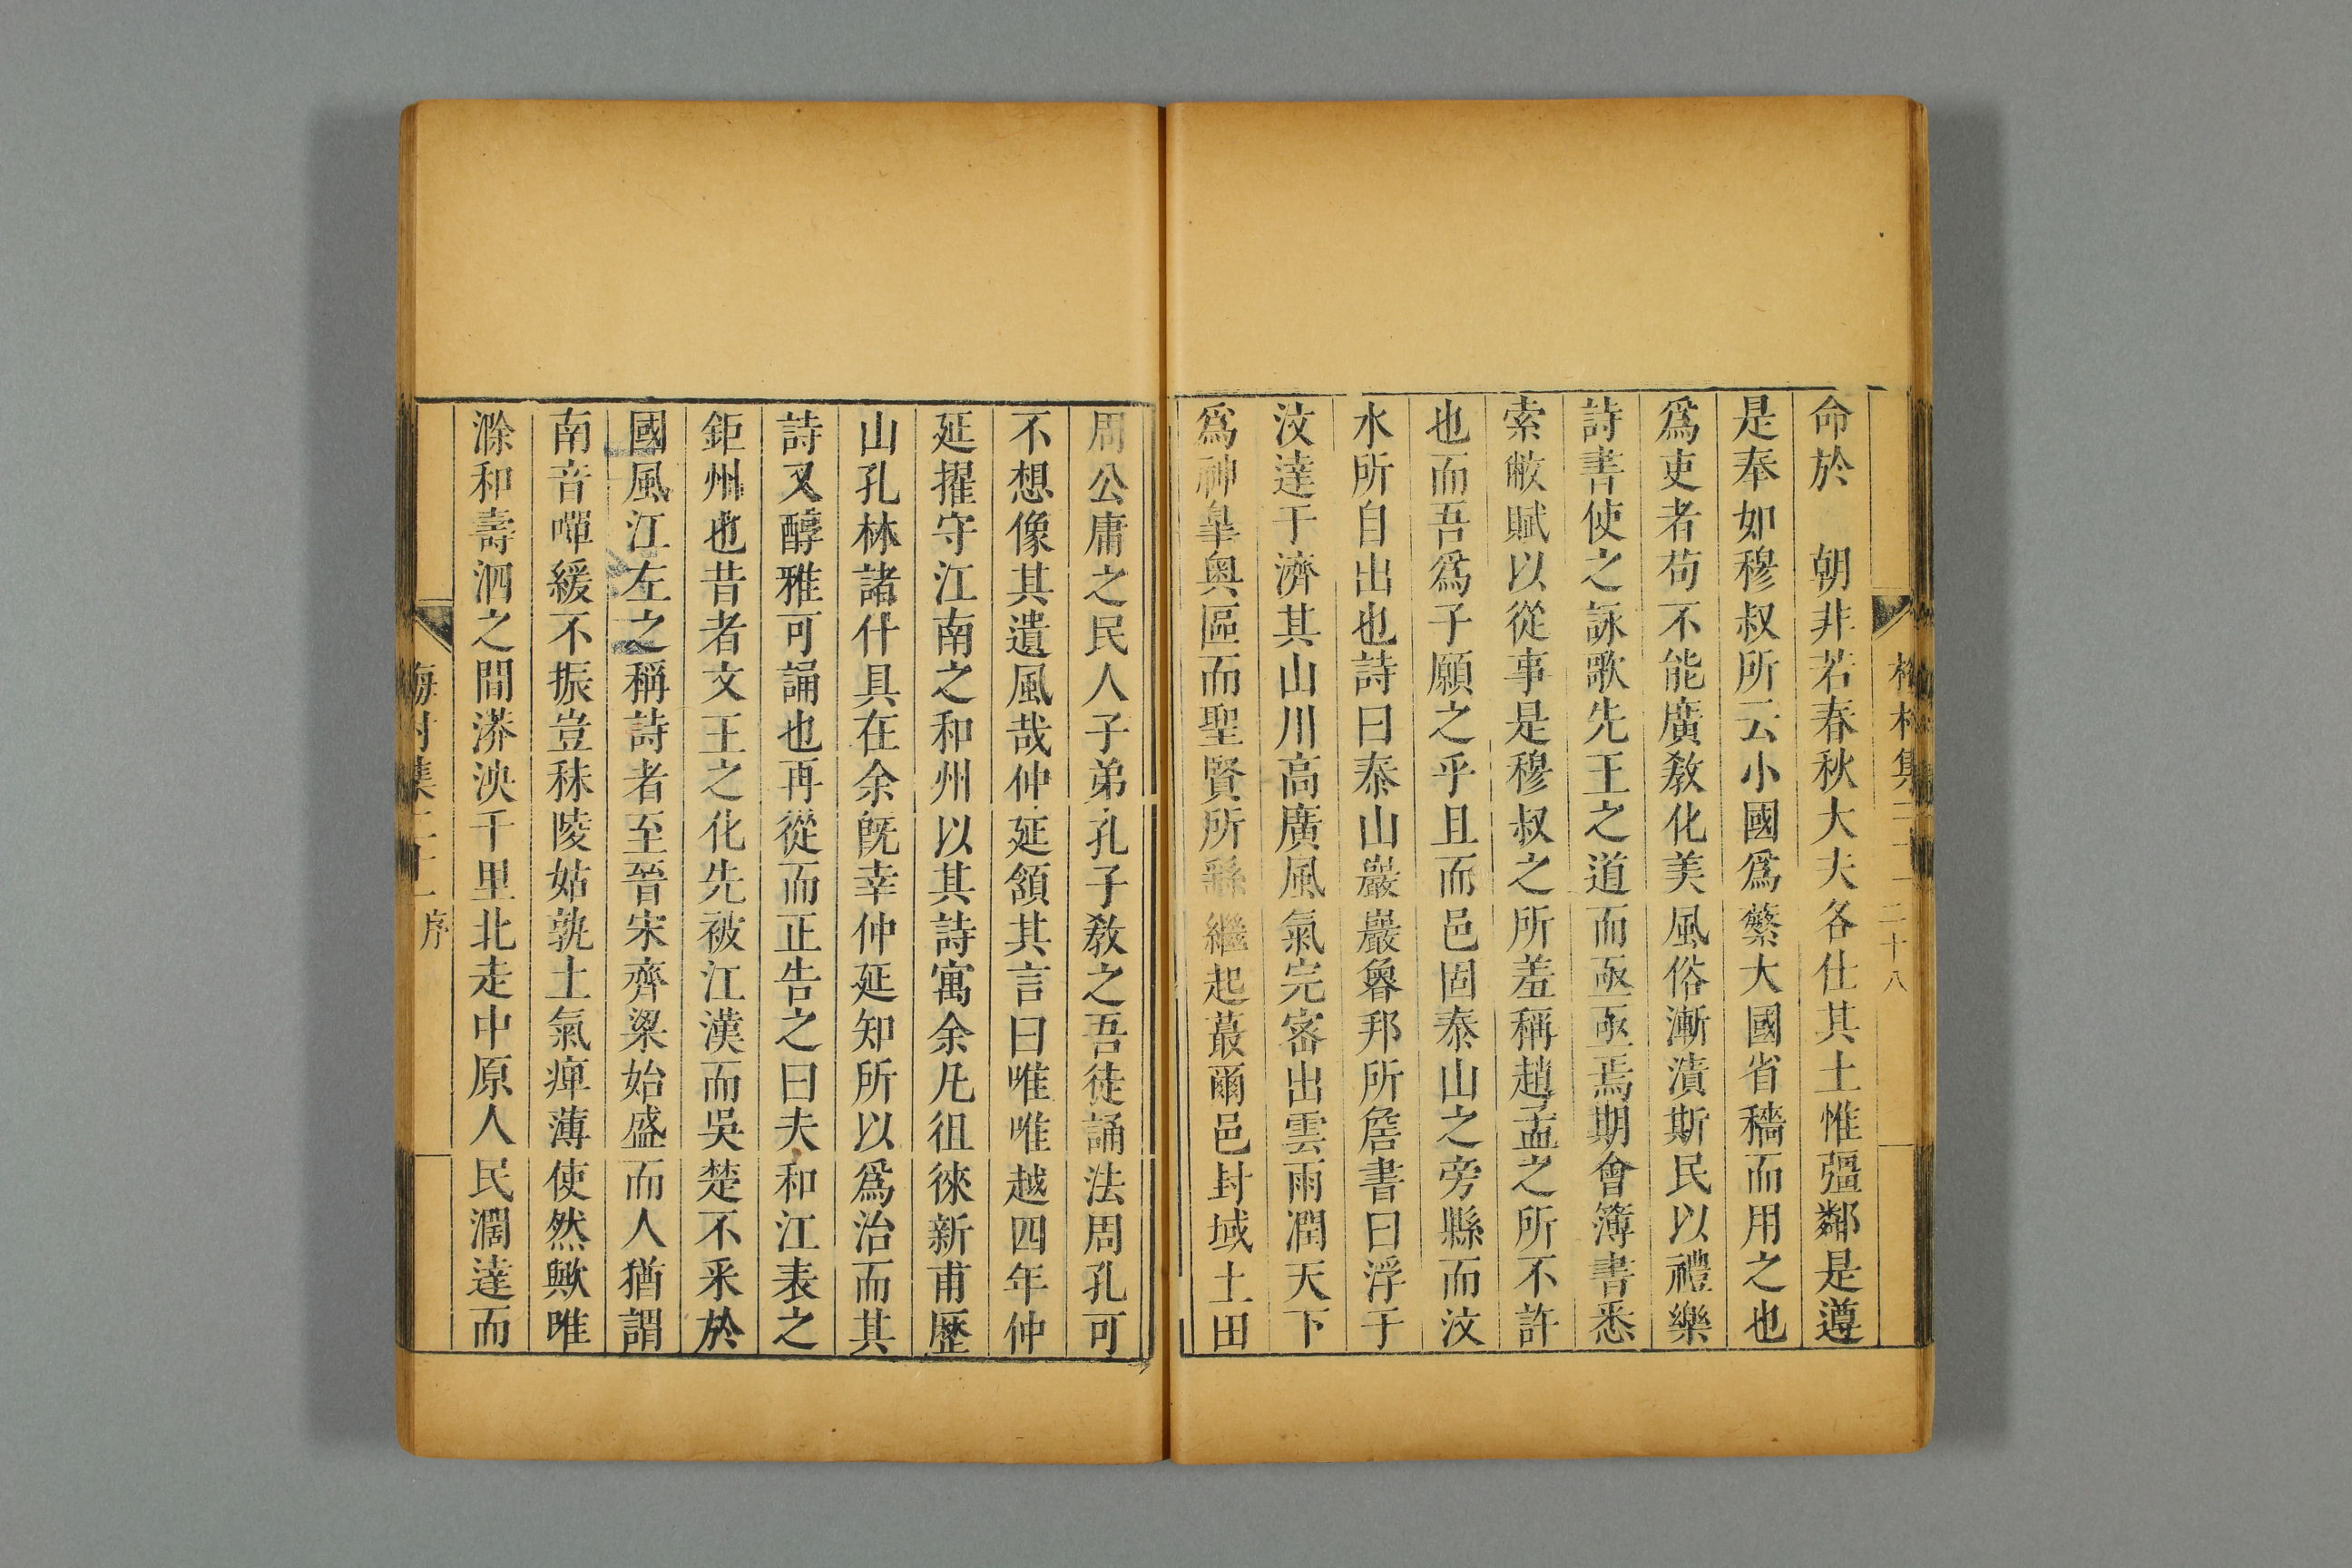 二十八
命於　朝非若春秋大夫各仕其土惟彊鄰是遵
是奉如穆叔所云小國為蘩大國省穡而用之也
為吏者苟不能廣教化美風俗漸漬斯民以禮樂
詩書使之詠歌先王之道而亟亟焉期會簿書悉
索敝賦以從事是穆叔之所羞稱趙孟之所不許
也而吾為子願之乎且而邑固泰山之旁縣而汶
水所自出也詩曰泰山巖巖魯邦所詹書曰浮于
汶達于濟其山川高廣風氣完密出雲雨潤天下
為神臯奧區而聖賢所繇繼起蕞爾邑封域土田
周公庸之民人子弟孔子教之吾徒誦法周孔可
不想像其遺風哉仲延頷其言曰唯唯越四年仲
延擢守江南之和州以其詩寓余凡徂徠新甫歷
山孔林諸什具在余旣幸仲延知所以為治而其
詩又醇雅可誦也再從而正告之曰夫和江表之
鉅州也昔者文王之化先被江漢而吳楚不釆於
國風江左之稱詩者至晉宋齊梁始盛而人猶謂
南音嘽緩不振豈秣陵姑孰土氣痺薄使然歟唯
滁和壽泗之間漭泱千里北走中原人民濶達而
梅村集二十一　序